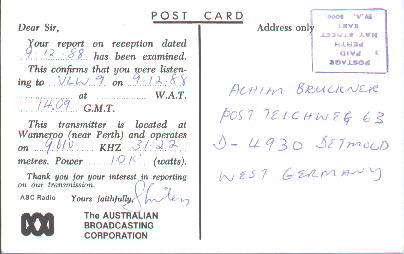 POST CARD
Dear Sir,
Your report on reception dated
9-12-88 has been examined.
This confirms that you were listen-
ing to VLW 9 on 9-12-88
at W.A.T.
14.09 G.M.T.
This transmitter is located at
Wanneroo (near Perth) and operates
on 9610 KHZ 31.22
metres. Power 10K (watts).
Thank you for your interest in reporting
on our transmission.
ABC Radio Yours faithfully,
The AUSTRALIAN
BROADCASTING
CORPORATION
Address only
POSTAGE
PAID
HAY STREET
EAST
PERTH
W.A. 6000
ACHIM BRUCKNER
POST TEICHWEG 63
D-4930 DETMOLD
WEST GERMANY